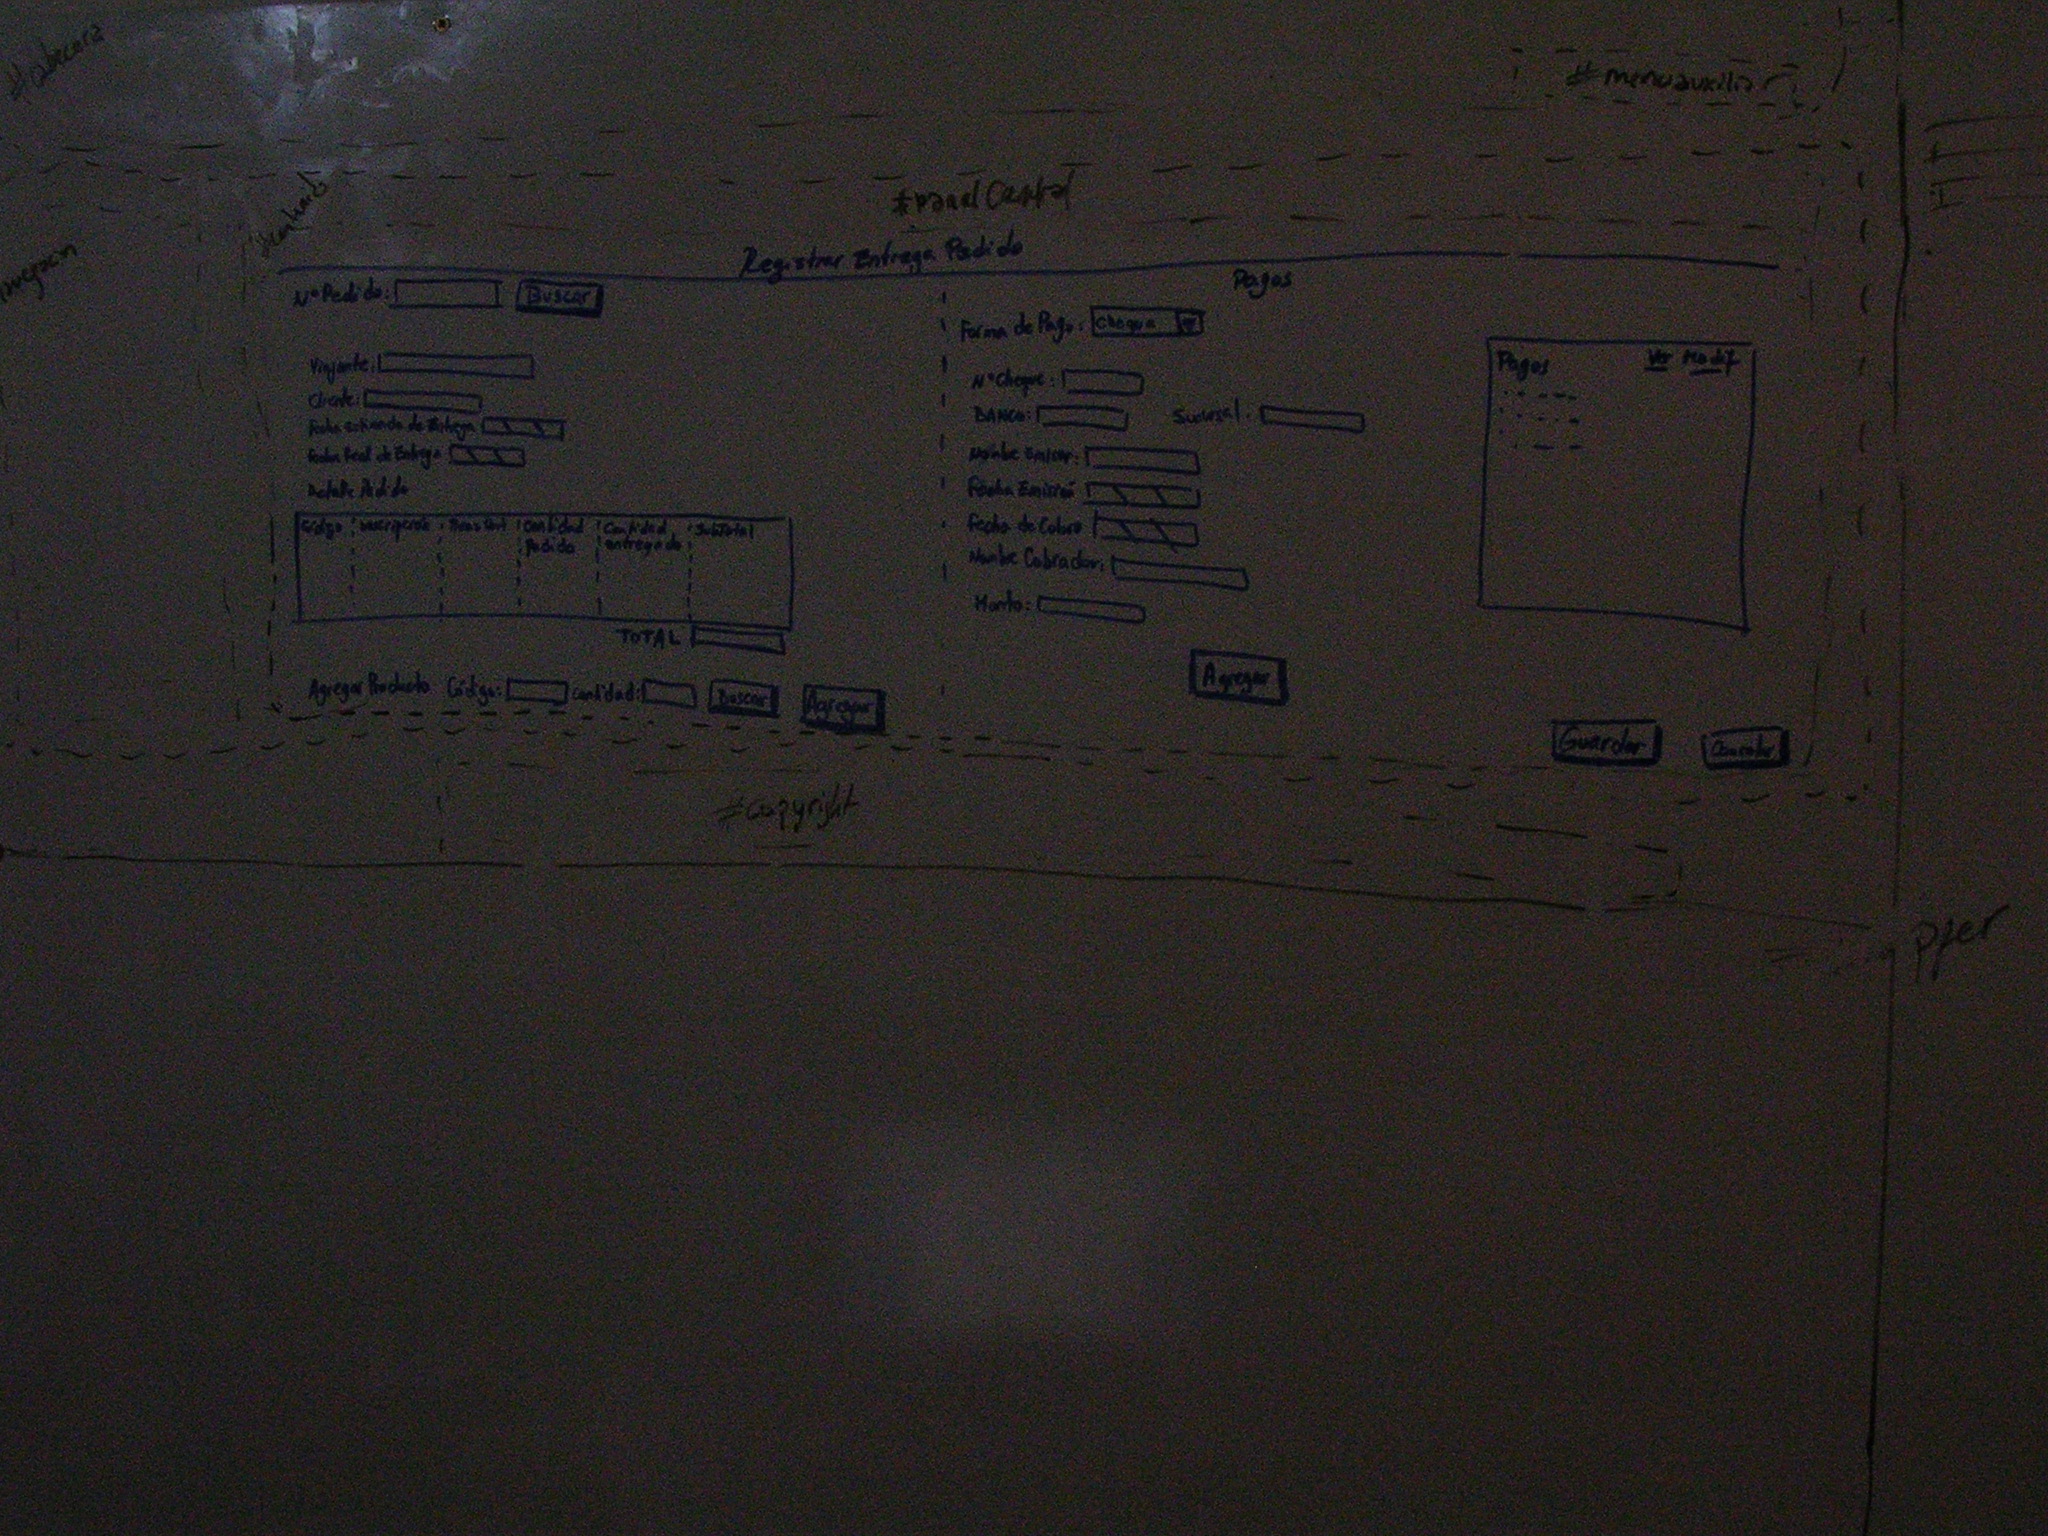 #cabecera
#menuauxiliar
#panelCentral
Registrar Entrega Pedido
N° Pedido: Buscar
Viajante:
Cliente:
Fecha estimada de Entrega
Fecha Real de Entrega
Detalle Pedido
Código Descripción Cantidad pedido Cantidad entregada SubTotal
TOTAL
Agregar Producto Código: Cantidad: Buscar Agregar
Pagos
Forma de Pago: Cheque
N° Cheque:
BANCO: Sucursal:
Nombre Emisor:
Fecha Emisión
Fecha de Cobro
Nombre Cobrador:
Monto:
Agregar
Pagos Ver Modif
Guardar Cancelar
#copyright